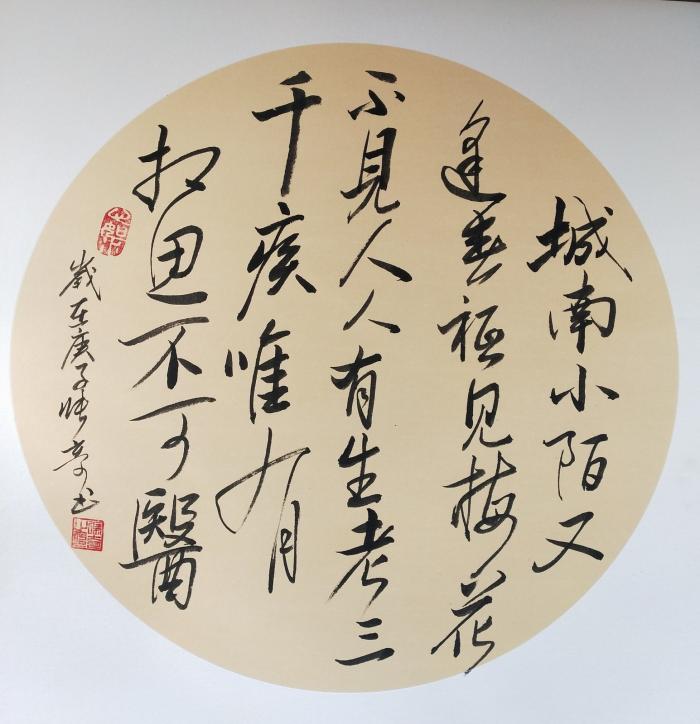 城南小陌又
逢春祗见梅花
不見人人有生老三
千疾唯有
相思不可醫
歲在庚子书